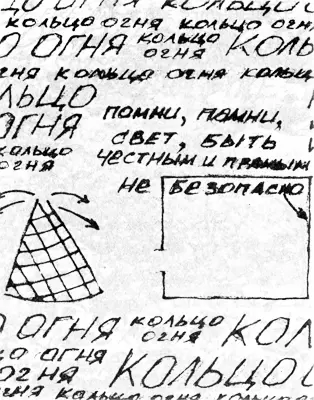 ДО ОГНЯ КОЛЬЦО О
КОЛЬЦО ОГНЯ КОЛЬЦО ОГН
О ОГНЯ КОЛЬЦО ОГНЯ КОЛЬ
ГНЯ КОЛЬЦО ОГНЯ КОЛЬЦ
ЛЬЦО
ОГНЯ
КОЛЬЦО
ОГНЯ
ПОМНИ, ПОМНИ,
СВЕТ, БЫТЬ
ЧЕСТНЫМ И ПРЯМЫМ
НЕ БЕЗОПАСНО
О ОГНЯ КОЛЬЦО ОГНЯ КОЛ
ЦО ОГНЯ
ОГНЯ КОЛЬЦО
ГНЯ КОЛЬЦО ОГНЯ КОЛЬЦО